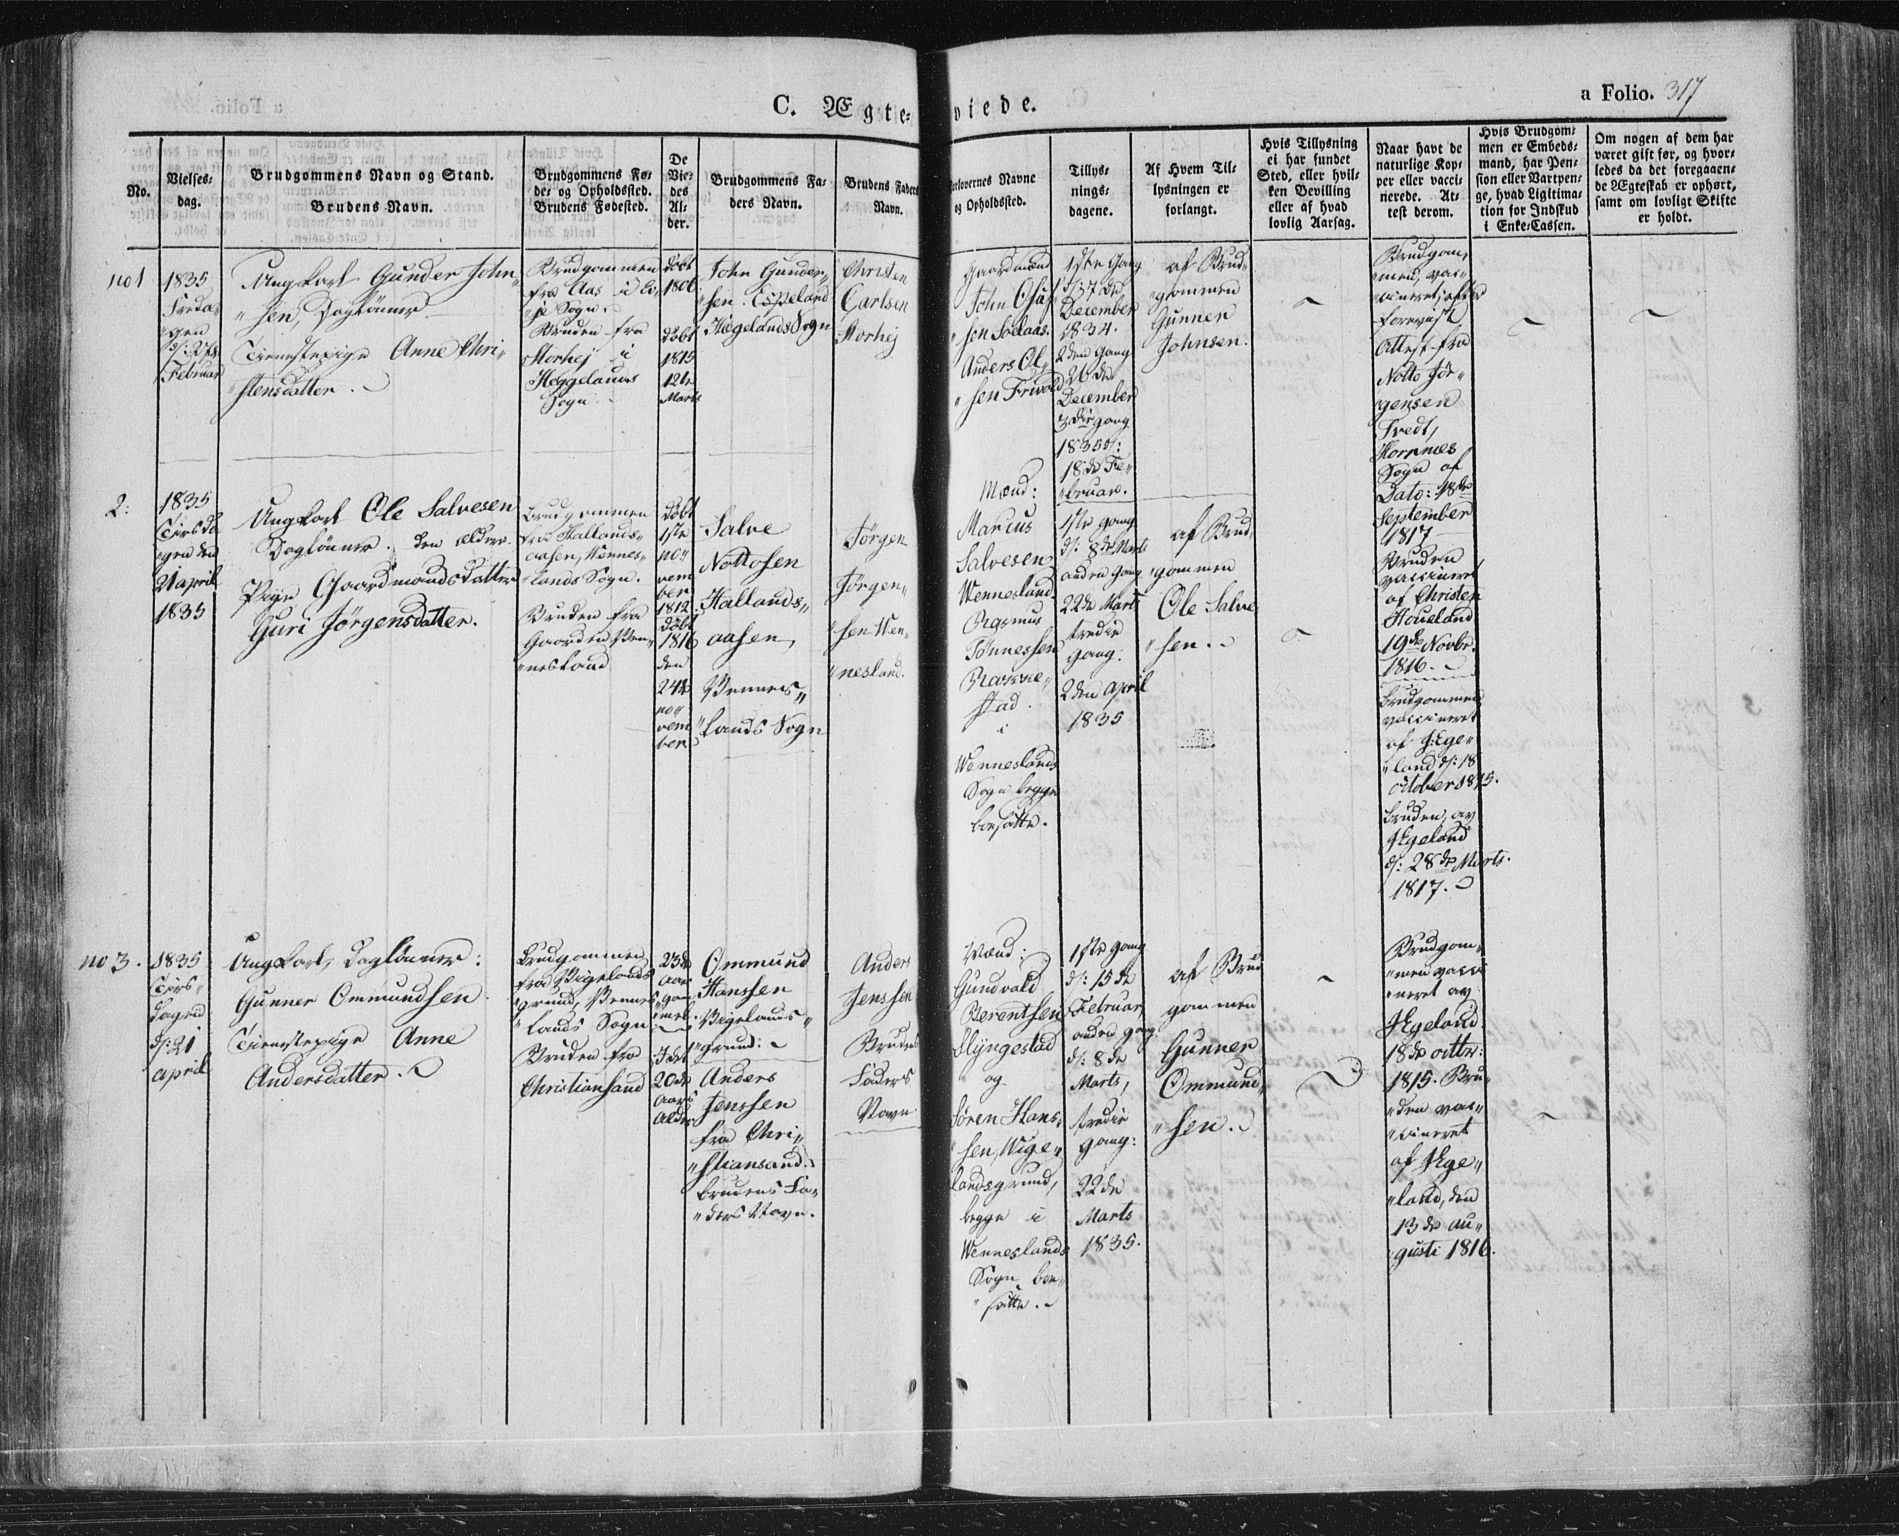 C. Ægteviede.
a Folio. 317
No.
Vielsesdag.
Brudgommens Navn og Stand.
Brudens Navn.
Brudgommens Føde- og Opholdssted.
Brudens Fødested.
De Viedes Alder.
Brudgommens Faders Navn.
Brudens Faders Navn.
Forlovernes Navne og Opholdssted.
Tillysningsdagene.
Af Hvem Tillysningen er forlangt.
Hvis Tillysning ei har fundet Sted, eller hvilken Bevilling eller af hvad lovlig Aarsag.
Naar havt de naturlige Kopper eller vaccinerede. Attest derom.
Hvis Brudgommen er Embedsmand, har Pension eller Vartpenge, hvad Ligitimation for Indskud i Enke-Cassen.
Om nogen af dem har været gift før, og hvorledes da det foregaaende Ægteskab er ophørt, samt om lovligt Skifte er holdt.
no 1
1835
Freda„
gen
Februar
Ungkarl Gunder John„
„sen, Daglønner
Tienestepige Anne Chri„
„stensdatter.
Brudgommen
fra Aas i
Sogn.
Bruden fra
Storhej i
Heggelands
Sogn
Døbt
1806
Døbt
1815
12te
Marts
John Gunder„
„sen Espeland
Hegelands Sogn
Christen
Carlsen
Storhej
Gaardmænd
John
Anders Ol„
„sen Frivold
1ste Gang
d: 7de
December
1834.
2den Gang
26de
December
3die gang
1835 d:
18de Fe„
„bruar.
af Brud„
„gommen
Gunner
Johnsen.
Brudgom„
„men, vac„
„cineret, efter
foreviist
Attest fra
Notto Jør„
„gensen
Tvedt,
Hornnæs
Sogn af
Dato: 18de
September
1817
Bruden
vaccineret
af Christen
Houeland
19de Novbr.
1816.
2:
1835
Tirsda
„gen den
21 april
1835
Ungkarl Ole Salvesen
Daglønner. den ældre.
Pige Gaardmandsdatter
Guri Jørgensdatter.
Brudgommen
fra Hallands„
aasen, Wennes„
„lands Sogn.
Bruden fra
Gaarden Ven„
„nesland
Døbt
1ste
no„
vem
ber
1812.
Døbt
1816
den
24de
no„
vem
ber
Salve
Nottosen
Hallands„
aasen,
Vennes„
„lands Sogn
Jørgen
Jørgen„
„sen Wen„
„nesland.
Mænd:
Marcus
Salvesen
Wennesland
Rasmus
Tønnessen
Rakke„
stad.
i
Wenneslands
Sogn begge
boesatte.
1ste gang
d: 8de Marts
anden Gang
22de Marts
tredie
Gang:
2den April
1835
af Brud„
„gommen
Ole Salve
„sen.
Brudgommen
vaccineret
af Hege„
„land d: 18
october 1815.
Bruden, av
Hegeland
d: 28de Marts.
1817.
no 3.
1835
Tirs„
dagen
d: 21
april
Ungkarl, Daglønner:
Gunner Ommundsen.
Tienestepige Anne
Andersdatter.
Brudgommen
fra Vigelands
grund, Vennes
„lands Sogn
Bruden fra
Christiansand
23de
Aar
gam
mel.
I det
20de
Aars
Alder
Ommund
Hanssen
Vigelands„
„grund:
Anders
Jenssen
fra Chri„
„stiansand.
Brudens Fa„
„ders Navn.
Anders
Jenssen
Brudens
Faders
Navn
Mænd:
Gundvald
Berentsen
Slyngestad
og
Søren Hans„
„sen, Wige„
landsgrund,
begge i
Wenneslands
Sogn boe„
„satte.
1ste gang
d: 15de
Februar,
anden gang
d: 8de
Marts,
tredie
gang:
22de
Marts
1835.
af Brud
gommen
Gunner
Ommund„
„sen.
Brudgom„
„men vacci
„neret av
Hegeland.
18de octbr:
1815. Bru„
„den vac„
„cineret
af Hege„
„land, den
13de au„
„gusti 1816.